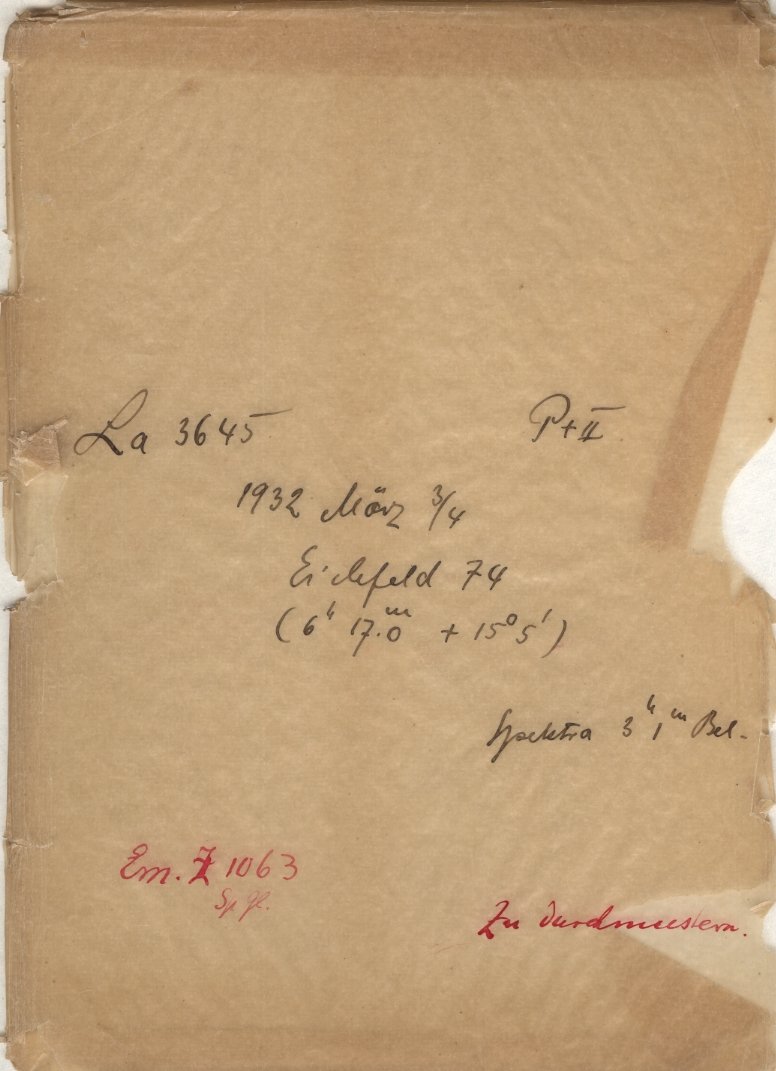 La 3645 P+II
1932 März 3/4
Eichfeld 74
(6h 17.m0 + 15° 5')
Spektra 3h 1m Bel.
Em. Z 1063
Sp. gl.
Zu durchmustern.